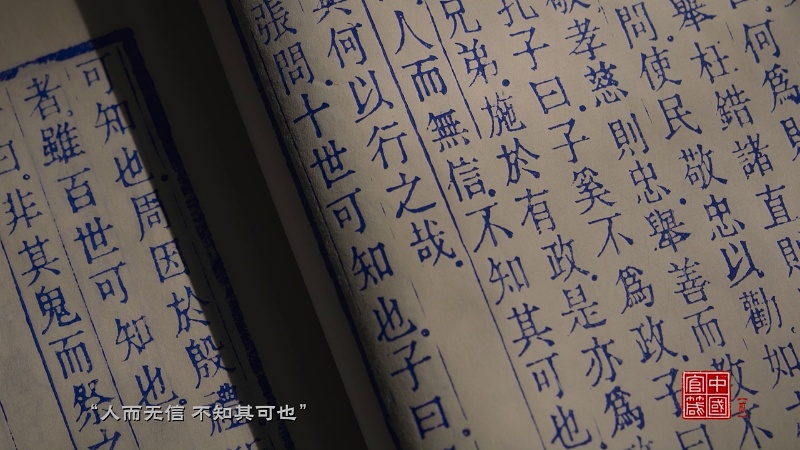 何為則
舉枉錯諸直則
問使民敬忠以勸如
敬孝慈則忠舉善而教不
孔子曰子奚不為政子曰
兄弟施於有政是亦為
人而無信不知其可也
何以行之哉
張問十世可知也子曰
可知也周因於殷禮
者雖百世可知也
曰非其鬼而祭之
“人而无信 不知其可也”
中國
官箴